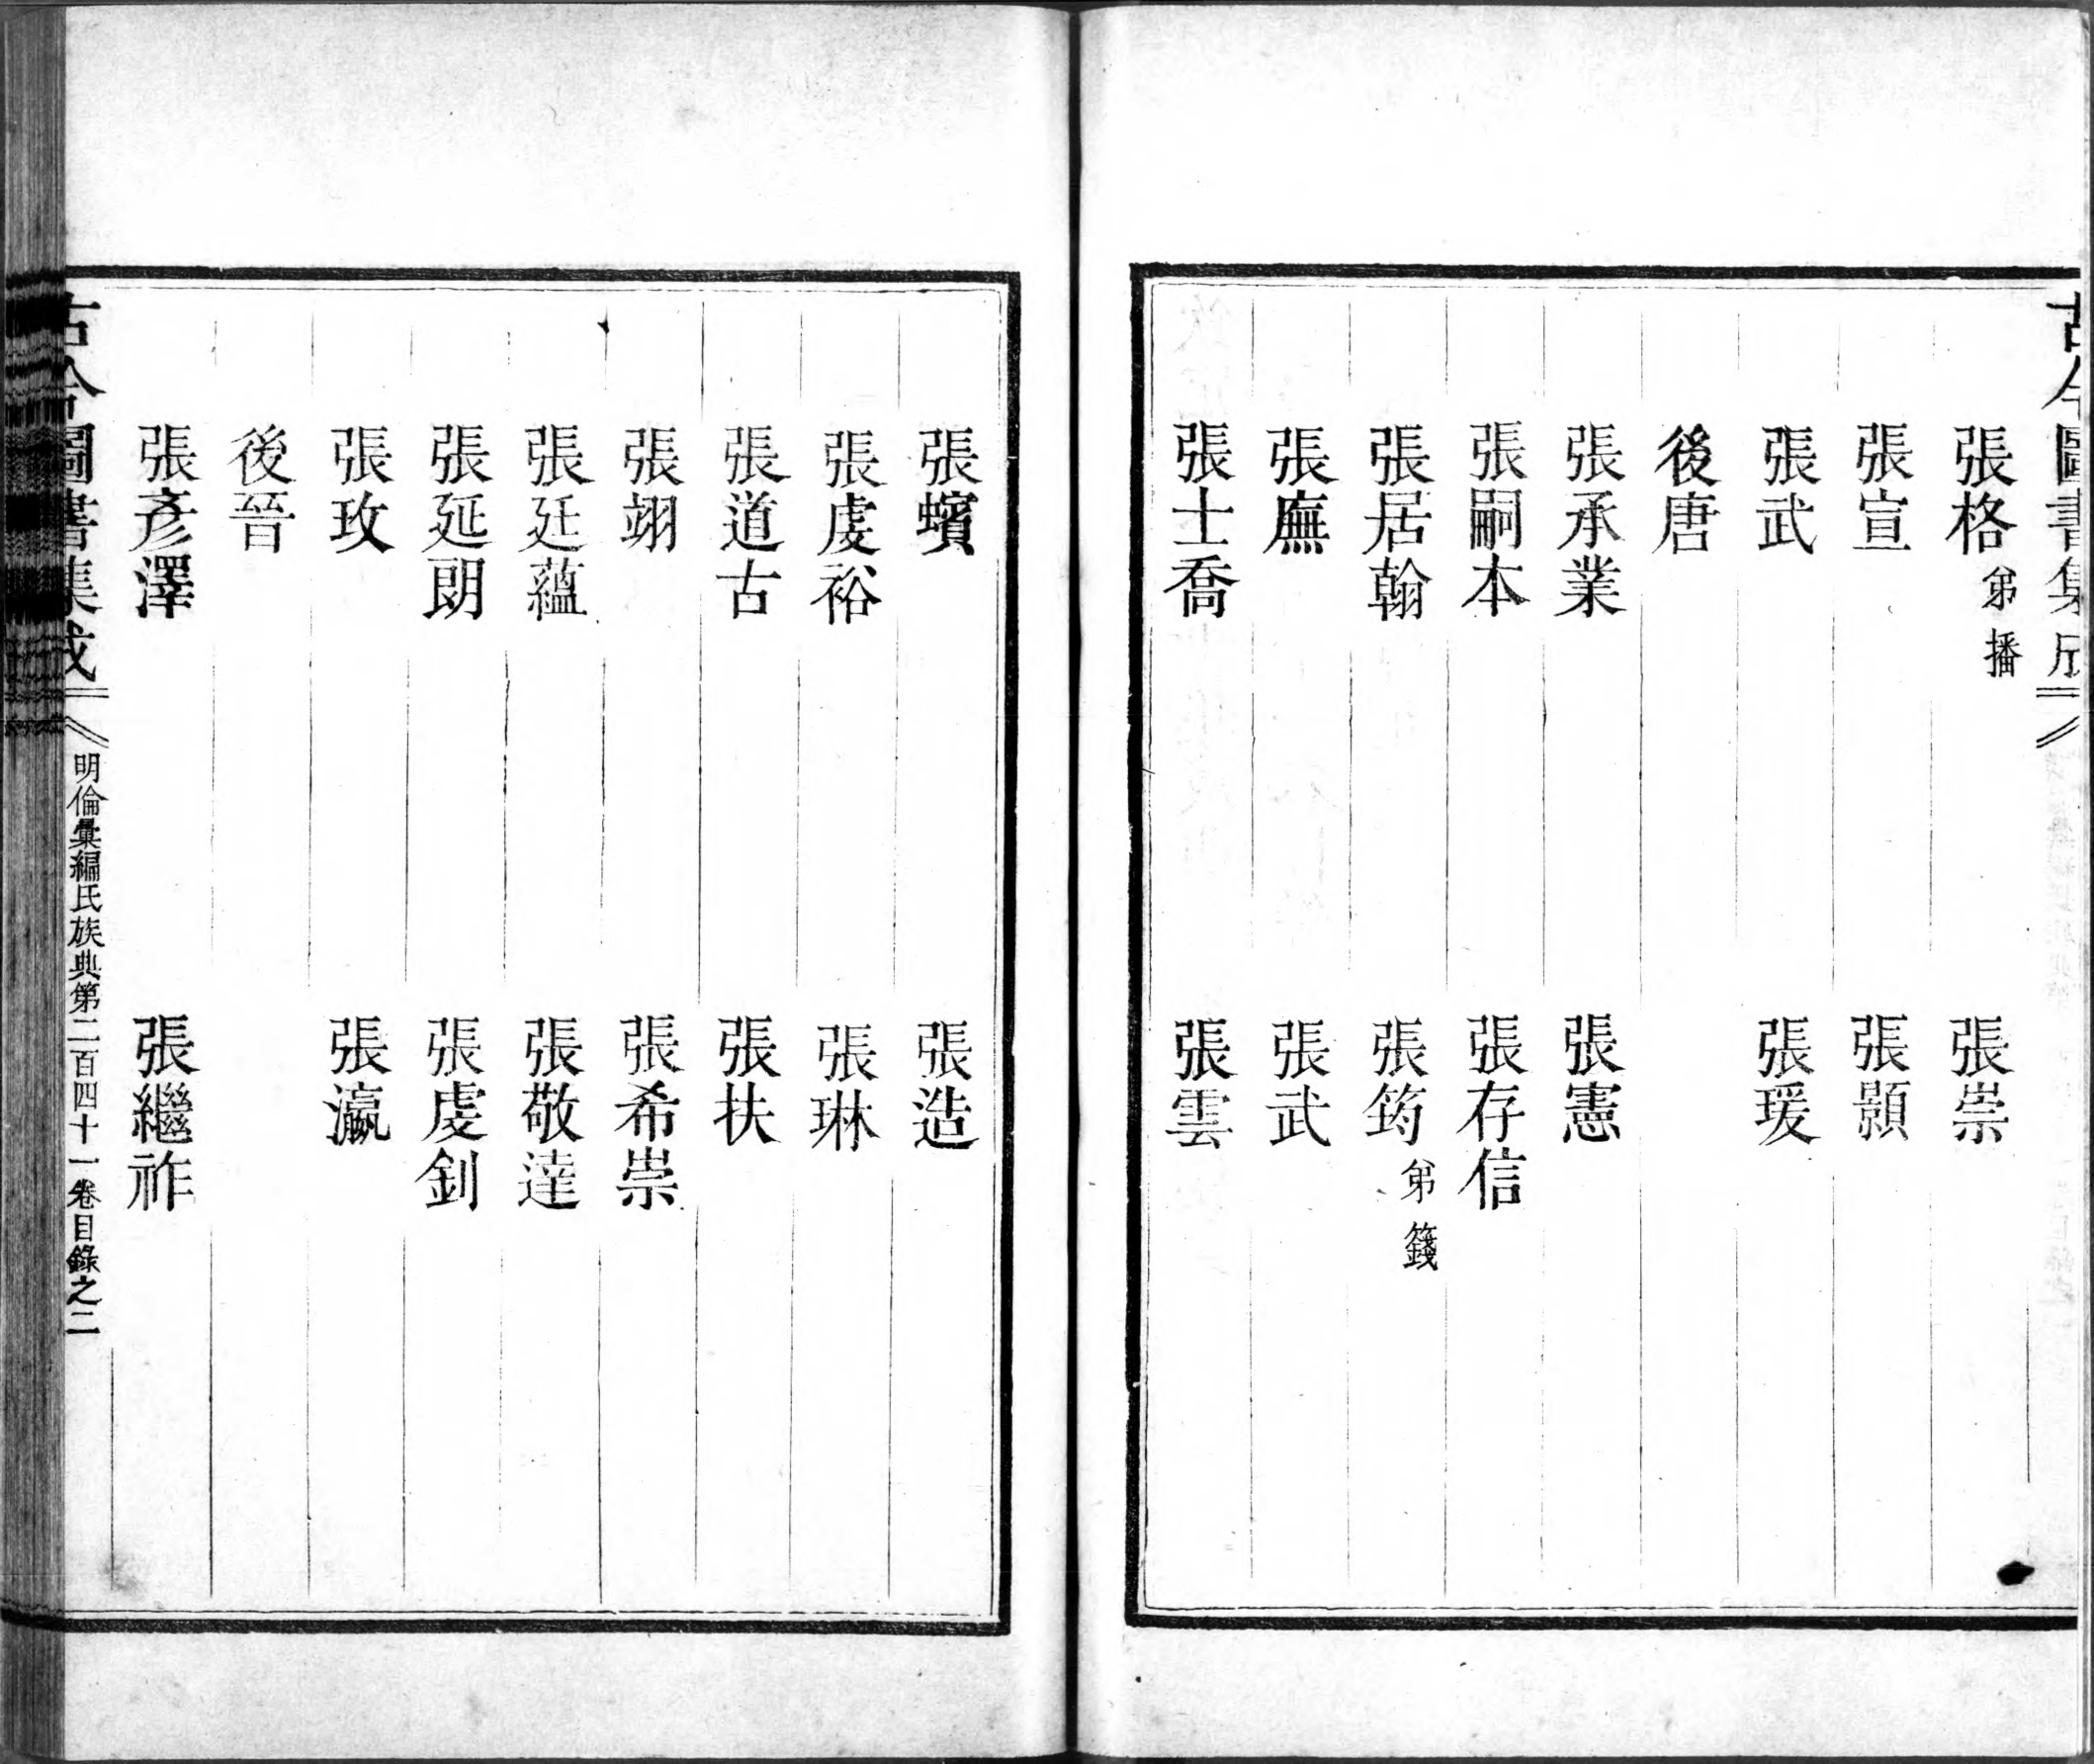 古今圖書集成
張格弟播 張崇
張宣 張顥
張武 張瑗
後唐
張承業 張憲
張嗣本 張存信
張居翰 張筠弟籛
張廡 張武
張士喬 張雲
張蠙 張造
張虔裕 張琳
張道古 張扶
張翊 張希崇
張廷蘊 張敬達
張延朗 張虔釗
張玫 張瀛
後晉
張彥澤 張繼祚
古今圖書集成 明倫彙編氏族典第二百四十一卷目錄之二